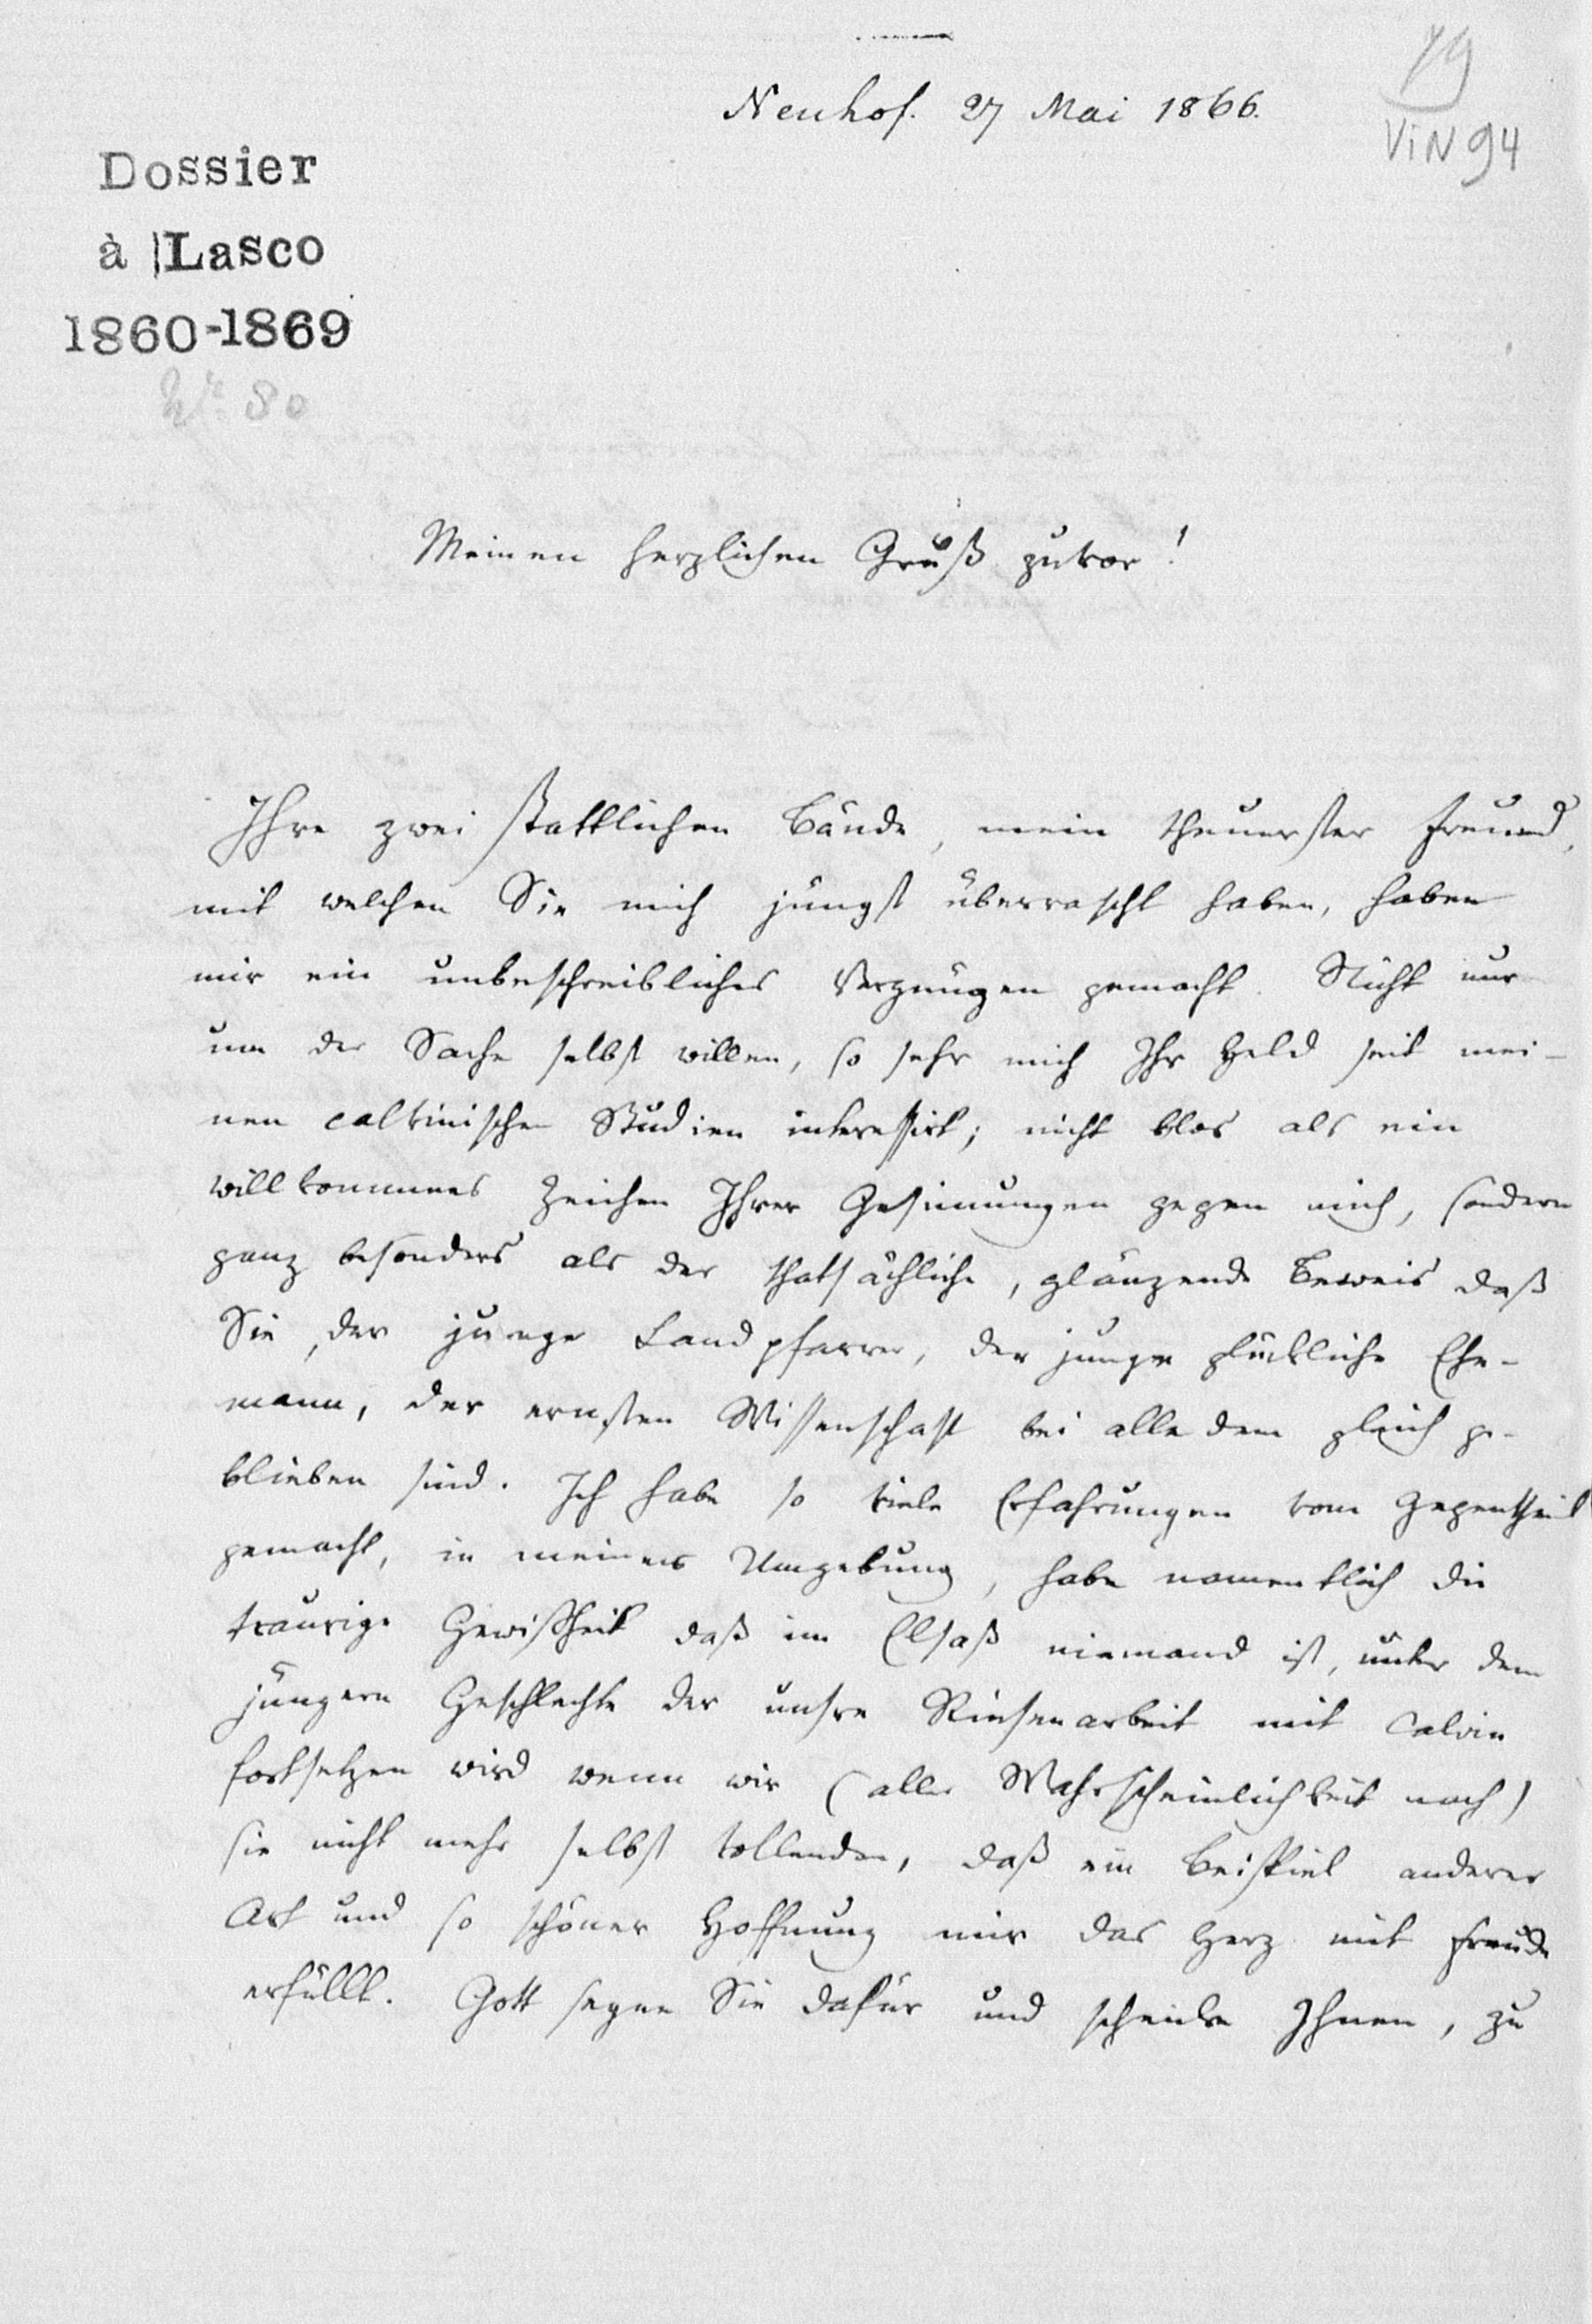 Neuhof. 27 Mai 1866.
79
VIN 94
Dossier
à Lasco
1860-1869
Nr. 80
Meinen herzlichen Gruß zuvor!
Ihre zwei stattlichen Bände, mein theuerster Freund,
mit welchen Sie mich jüngst überrascht haben, haben
mir ein unbeschreibliches Vergnügen gemacht. Nicht nur
um der Sache selbst willen, so sehr mich Ihr Held seit mei-
nen calvinischen Studien interessirt; nicht blos als ein
willkommnes Zeichen Ihrer Gesinnungen gegen mich, sondern
ganz besonders als der thatsächliche, glänzende Beweis daß
Sie, der junge Landpfarrer, der junge glückliche Ehe-
mann, der ernsten Wissenschaft bei alle dem gleich ge-
blieben sind. Ich habe so viele Erfahrungen vom Gegentheil
gemacht, in meiner Umgebung, habe namentlich die
traurige Gewißheit daß im Elsaß niemand ist, unter dem
jüngern Geschlechte der unsre Riesenarbeit mit Calvin
fortsetzen wird wenn wir (aller Wahrscheinlichkeit nach)
sie nicht mehr selbst vollenden, daß ein Beispiel anderer
Art und so schöner Hoffnung mir das Herz mit Freude
erfüllt. Gott segne Sie dafür und schenke Ihnen, zu